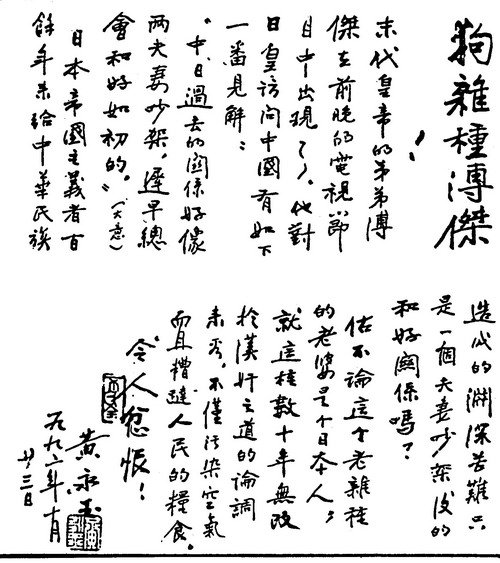 狗雜種溥傑！
末代皇帝的弟弟溥
傑在前晚的電視節
目中出現了，他對
日皇訪問中國有如下
一番見解：
“中日過去的關係好像
两夫妻吵架，遲早總
會和好如初的。”（大意）
日本帝國主義者百
餘年来給中華民族
造成的淵深苦難只
是一個夫妻吵架後的
和好關係嗎？
估不論這个老雜種
的老婆是个日本人，
就這種數十年無改
於漢奸之道的論調
来看，不僅污染空氣
而且糟躂人民的糧食。
令人忿恨！
黃永玉
一九九二年十月
廿三日